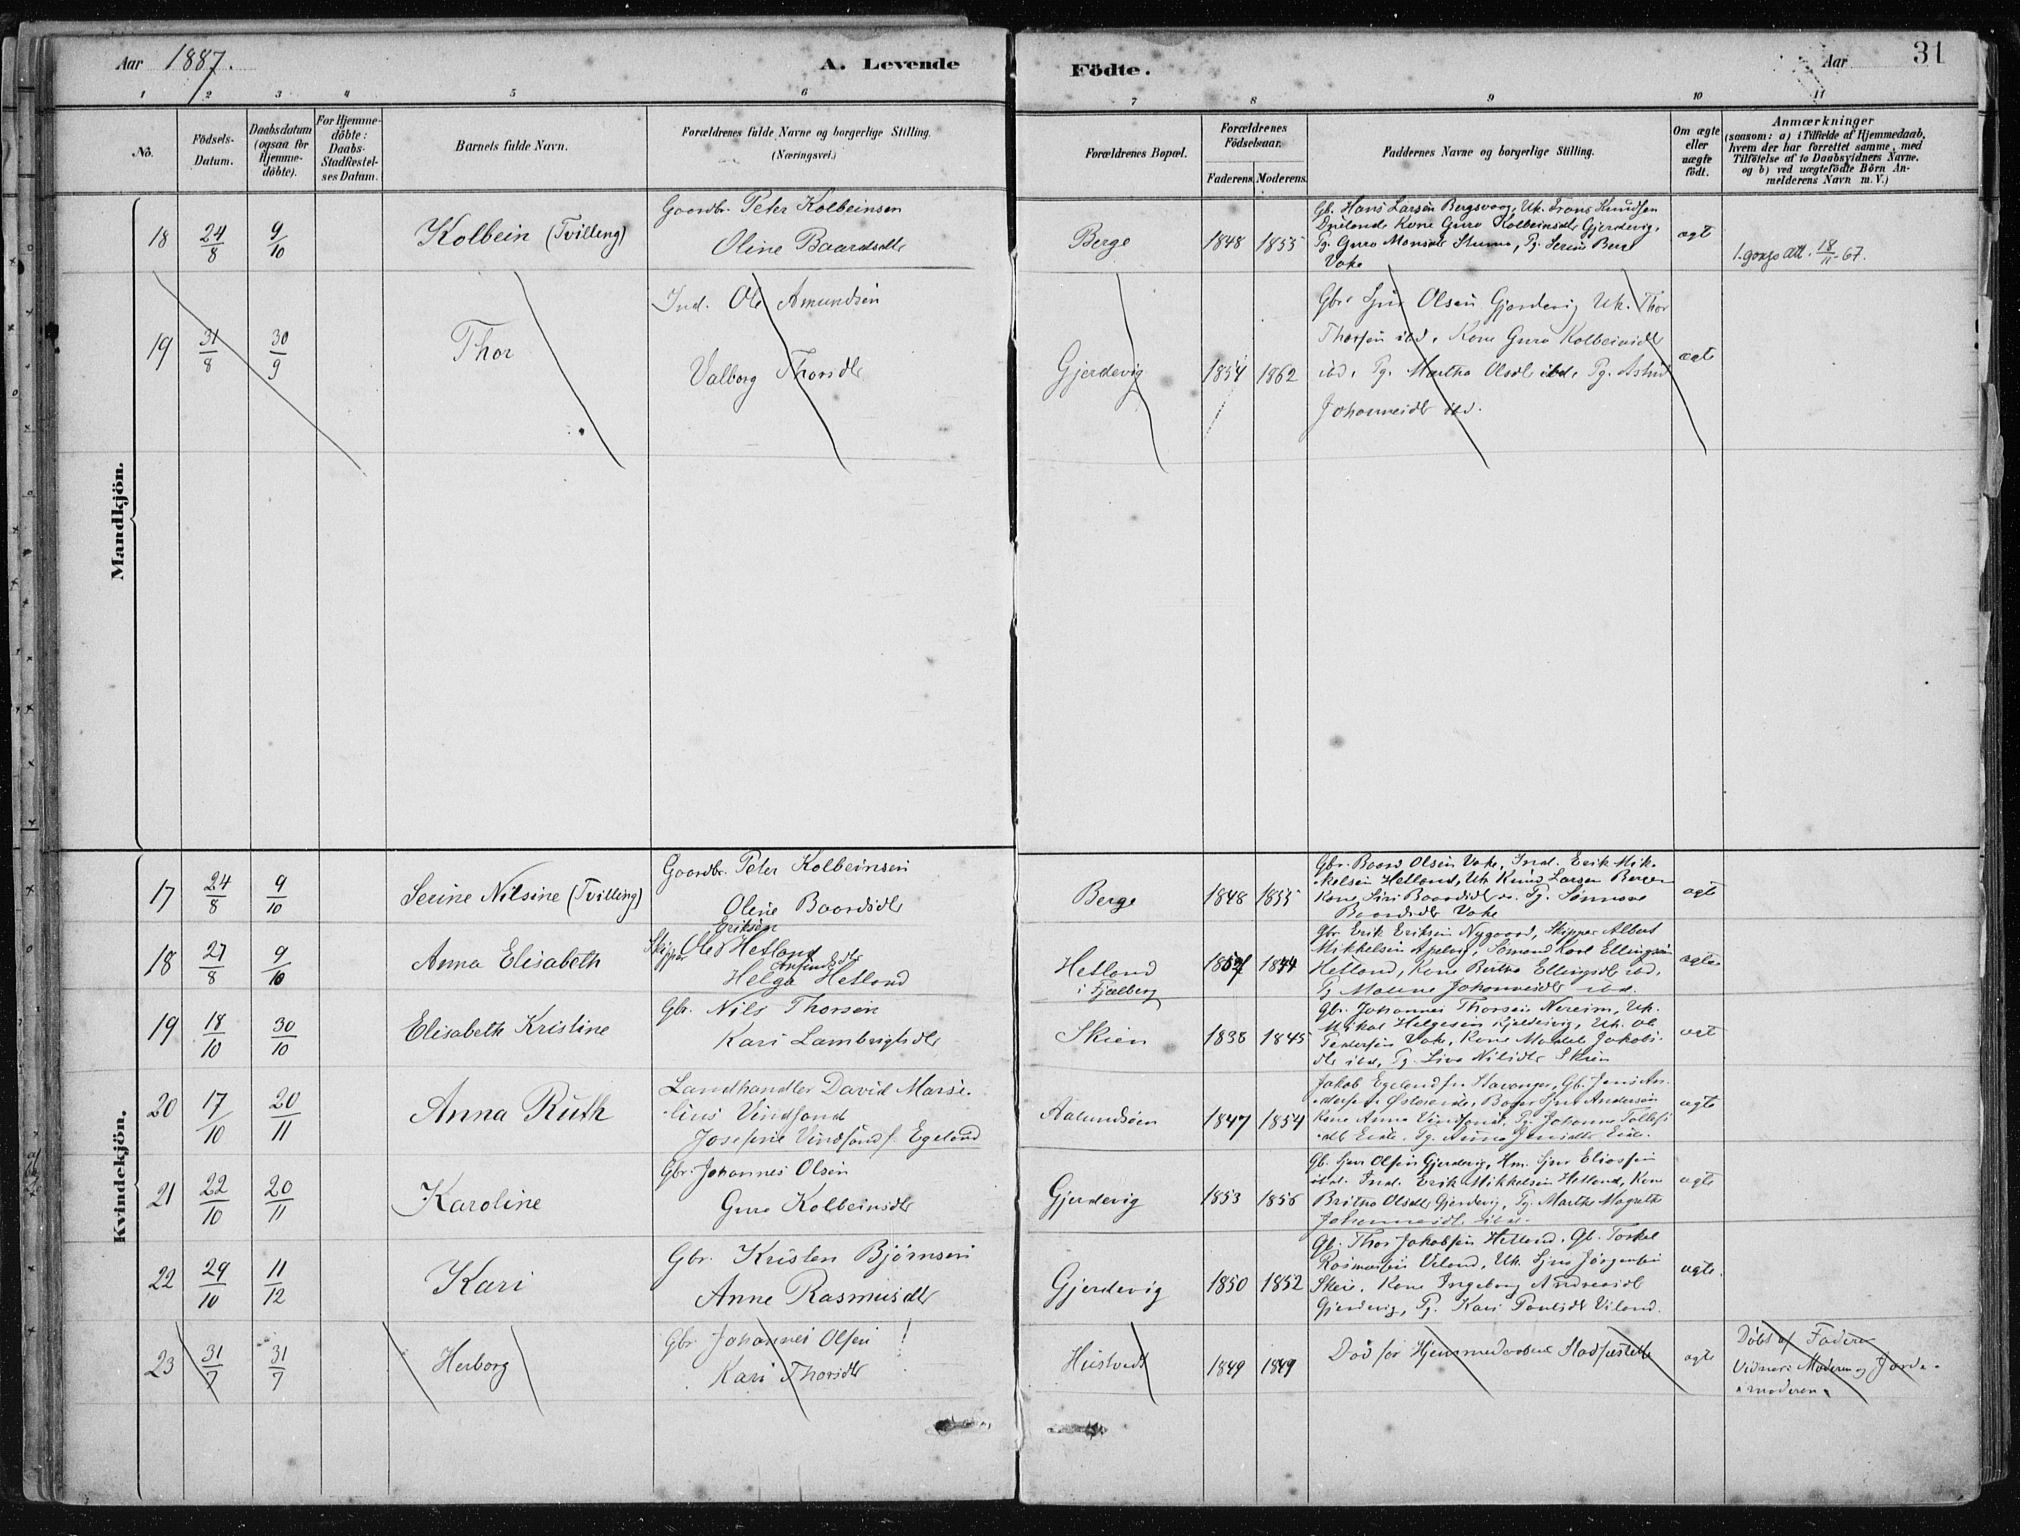 Aar 1887.
A. Levende
Födte.
Aar
31
1 2 3 4 5 6 7 8 9 10 11
No.
Födsels-
Datum.
Daabsdatum
(ogsaa for
Hjemme-
döbte).
For Hjemme-
döbte:
Daabs-
Stadfæstel-
ses Datum.
Barnets fulde Navn.
Forældrenes fulde Navne og borgerlige Stilling.
(Næringsvei.)
Forældrenes Bopæl.
Forældrenes
Födselsaar.
Faderens Moderens.
Faddernes Navne og borgerlige Stilling.
Om ægte
eller
uægte
födt.
Anmærkninger
(saasom: a) i Tilfælde af Hjemmedaab,
hvem der har forrettet samme, med
Tilföielse af to Daabsvidners Navne,
og b) ved uægtefödte Börn An-
melderens Navn m. V.)
Mandkjön.
18 24/8 9/10 Kolbein (Tvilling)
Gaardbr. Peter Kolbeinsen
Oline Baardsdtr
Berge 1848 1855
Gb. Hans Larsen Bergsvaag, Uk.
Kone Guro Kolbeinsdtr Gjerdevig,
Pg. Guro Monsdtr
Pg. Serina Berge
Vake
ægte
1. gangs att. 18/11-67.
19 31/8 30/9 Thor
Ind. Ole Amundsen
Valborg Thorsdtr
Gjerdevig 1854 1862
Gbr. Sjur Olsen Gjerdevig Uk. Thor
Thorsen ibd. Kone Guro Kolbeinsdtr
ibd. Pg. Martha Olsdtr ibd. Pg. Astrid
Johannesdtr ibd.
ægte
Kvindekjön.
17 24/8 9/10 Serine Nilsine (Tvilling)
Gaardbr. Peter Kolbeinsen
Oline Baardsdtr
Berge 1848 1855
Gbr. Baard Olsen Vake, Ind. Erik Mik-
kelsen Hetland, Uk. Knud Larsen Berge
Kone Siri Baardsdtr
Pg. Sønnove
Baardsdtr Vake
ægte
18 27/8 9/10 Anna Elisabeth
Skipper Ole Eriksen Hetland
Helga Hetland
Hetland
i Fjælberg
1844
Gbr Erik Eriksen Nygaard, Skipper Albert
Mikkelsen
Sømand Karl Ellingsen
Hetland, Kone Bertha Ellingsdtr ibd.
Pg Malene Johannesdtr ibd.
ægte
19 18/10 30/10 Elisabeth Kristine
Gbr. Nils Thorsen
Kari Lambrigtsdtr
Skien 1838 1845
Gbr. Johannes Thorsen Nereim, Uk.
Mikal Helgesen
Uk. Ol
Pedersen Vake, Kone
Jakobs-
dtr ibd, Pg. Liva Nilsdtr Skien
ægte
20 17/10 20/11 Anna Ruth
Landhandler David Marse-
lius Vindsand
Josefine Vindsand f. Egeland
Aalundsøen 1847 1854
Jakob Egeland fr. Stavanger, Gb. Jens An-
dersen
Sjur Andersen
Kone Anna Vindsand, Pg. Johanna Tollefs-
dtr Eide. Pg. Anna Jensdtr Eide.
ægte
21 22/10 20/11 Karoline
Gbr. Johannes Olsen
Guro Kolbeinsdtr
Gjerdevig 1853 1856
Gb. Sjur Olsen Gjerdevig, Hm. Sjur Eliassen
ibd. Ind. Erik Mikkelsen Hetland, Kone
Britha Olsdtr Gjerdevig, Pg. Martha Magrete
Johannesdtr ibd.
ægte
22 29/10 11/12 Kari
Gbr. Kristen Bjørnsen
Anne Rasmusdtr
Gjerdevig 1850 1852
Gb. Thor Jakobsen Hetland. Gb. Torkel
Rasmussen Viland, Uk. Sjur Jørgensen
Skeie. Kone Ingeborg Andreasdtr
Gjerdevig, Pg. Kari Poulsdtr Viland.
ægte
23 31/7 31/7 Herborg
Gbr Johannes Olsen
Kari Thorsdtr
Hustvedt 1849 1849
Død før Hjemmedaabens Stadfæstelse
ægte
Døbt af Faderen
Vidner: Moderen og Jorde-
moderen.